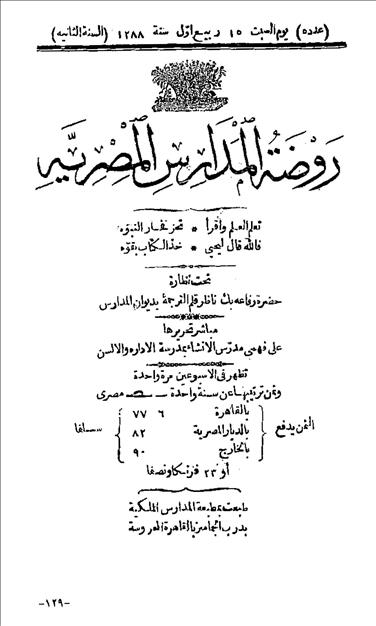 (عدده) يوم السبت ١٥ ربيع اول سنة ١٢٨٨ (السنة الثانيه)
روضة المدارس المصريه
تعلم العلم واقرأ * تحز فخار النبوه
فالله قال ليحيى * خذ الكتاب بقوه
تحت نظارة
حضرة رفاعه بك ناظر قلم الترجمة بديوان المدارس
مباشر تحريرها
على فهمى مدرس الانشاء بمدرسة الاداره والالسن
تظهر فى الاسبوعين مرة واحدة
وثمن ترتيبها عن سنة واحدة مصرى
الثمن يدفع سلفا
بالقاهرة ٦ ٧٧
بالديار المصرية ٨٢
بالخارج ٩٠
أو ٢٣ فرنكا ونصفا
طبعت بمطبعة المدارس الملكية
بدرب الجماميز بالقاهرة المحروسة
-١٢٩-